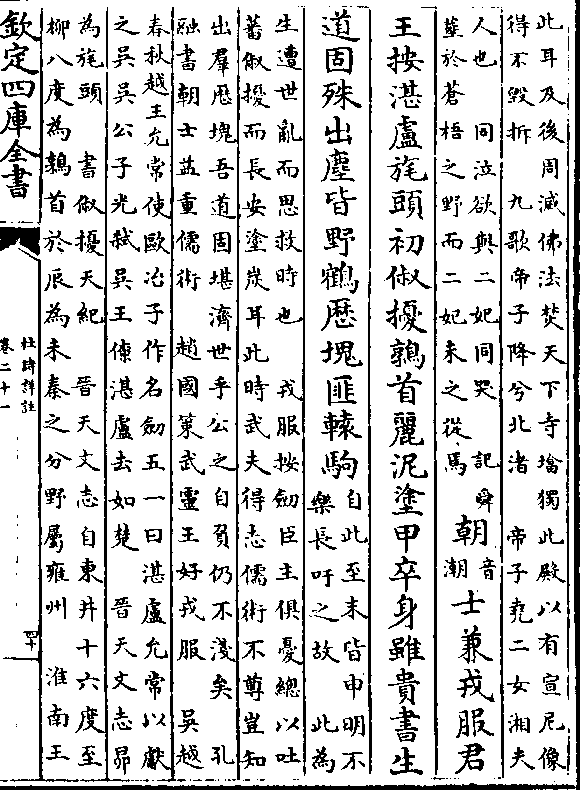 此耳及後周滅佛法焚天下寺墖獨此殿以有宣尼像
得不毀拆　九歌帝子降兮北渚　帝子堯二女湘夫
人也　同泣欲與二妃同哭　記舜
葬於蒼梧之野而二妃未之從焉
朝音潮士兼戎服君
王按湛盧旄頭初俶擾鶉首麗泥塗甲卒身雖貴書生
道固殊出塵皆野鶴歷塊匪轅駒
自此至末皆申明不
樂長吁之故　此為
生遭世亂而思救時也　戎服按劍臣主俱憂總以吐
蕃俶擾而長安塗炭耳此時武夫得志儒術不尊豈知
出羣歷塊吾道固堪濟世乎公之自負仍不淺矣　孔
融書朝士益重儒術　趙國策武靈王好戎服　吳越
春秋越王允常使歐冶子作名劍五一曰湛盧允常以獻
之吳吳公子光弒吳王僚湛盧去如楚　晉天文志昴
為旄頭　書俶擾天紀　晉天文志自東井十六度至
柳八度為鶉首於辰為未秦之分野屬雍州　淮南王
欽定四庫全書
杜詩詳註
卷二十一
四十